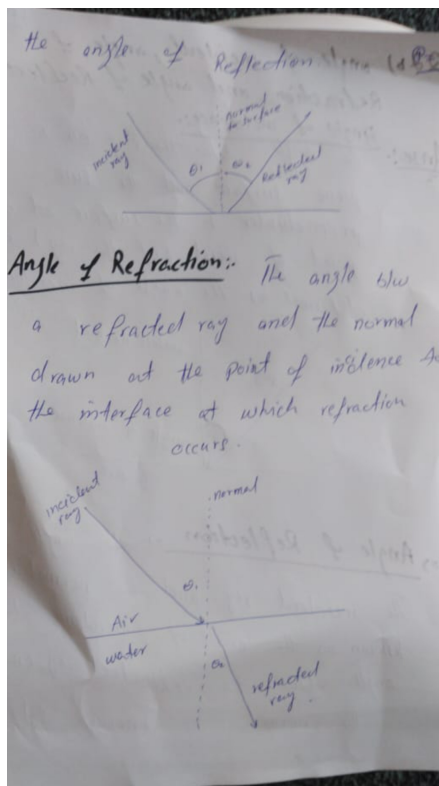 the angle of Reflection
normal
to surface
incident
ray
θ1
θ2
Reflected
ray
Angle of Refraction:-
The angle b/w
a refracted ray and the normal
drawn at the point of incidence to
the interface at which refraction
occurs.
incident
ray
normal
θ1
Air
water
θ2
refracted
ray